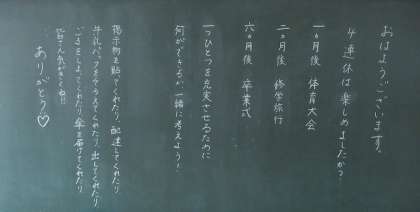 おはようございます。
4連休は楽しめましたか?
一ヵ月後 体育大会
二ヵ月後 修学旅行
六ヵ月後 卒業式
一つひとつを充実させるために
何ができるか一緒に考えよう!
掲示物を貼ってくれたり、配達してくれたり
牛乳パックをそろえてくれたり、出してくれたり
ごうをしょってくれたり、傘を届けてくれたり
皆さん気がきくね!!
ありがとう♡